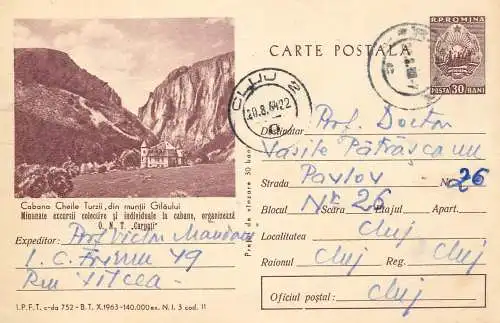 CARTE POSTALĂ
R.P.ROMINA
POSTA 30 BANI
CLUJ 2
20.8.64 22
Destinatar Prof. Doctor
Vasile Pătrășcanu
Strada Pavlov No. 26
Blocul Nr 26 Scara Etajul Apart.
Localitatea Cluj
Raionul Cluj Reg. Cluj
Oficiul poștal: Cluj
Prețul de vînzare 30 bani
Cabana Cheile Turzii, din munții Gilăului
Minunate excursii colective și individuale la cabane, organizează
O. N. T. „Carpați"
Expeditor: Prof Victor
I. C. Frimu 49
Rm Vîlcea
I.P.F.T. c-da 752 - B.T. X.1963-140.000 ex. N.I. 3 cod. 11